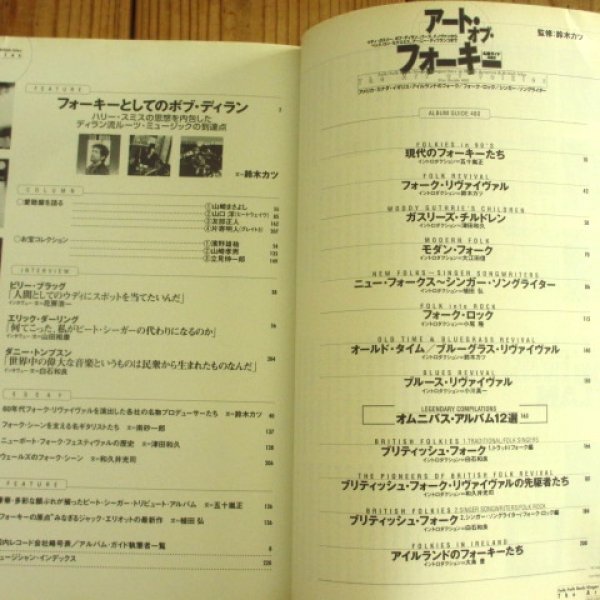 FEATURE
フォーキーとしてのボブ・ディラン 2
ハリー・スミスの思想を内包した
ディラン流ルーツ・ミュージックの到達点
文=鈴木カツ
COLUMN
◎愛聴盤を語る
①山崎まさよし
②山口 洋(ヒートウェイヴ)
③友部正人
④片寄明人(グレイト3)
◎お宝コレクション
①濱野雄祐
②山崎孝男
③立見伸一郎
INTERVIEW
ビリー・ブラッグ
「人間としてのウディにスポットを当てたいんだ」
エリック・ダーリング
「何てこった、私がピート・シーガーの代わりになるのか」
ダニー・トンプスン
「世界中の偉大な音楽というものは民衆から生まれたものなんだ」
インタヴュー=白石和良
ESSAY
60年代フォーク・リヴァイヴァルを演出した各社の名物プロデューサーたち 文=鈴木カツ
フォーク・シーンを支える名ギタリストたち 文=奥砂一郎
ニューポート・フォーク・フェスティヴァルの歴史 文=津田和久
ウェールズのフォーク・シーン 文=和久井光司
FEATURE
豪華・多彩な顔ぶれが揃ったピート・シーガー・トリビュート・アルバム 文=五十嵐正
フォーキーの原点"みなぎるジャック・エリオットの最新作 文=植田 弘
国内レコード会社略号表/アルバム・ガイド執筆者一覧
ミュージシャン・インデックス
アート・
オブ・
フォーキー
監修:鈴木カツ
アメリカ・カナダ・イギリス・アイルランドのフォーク/フォーク・ロック/シンガー・ソングライター
ALBUM GUIDE 400
FOLKIES in 90'S
現代のフォーキーたち
イントロダクション=五十嵐正
FOLK REVIVAL
フォーク・リヴァイヴァル
イントロダクション=鈴木カツ
WOODY GUTHRIE'S CHILDREN
ガスリーズ・チルドレン
イントロダクション=津田和久
MODERN FOLK
モダン・フォーク
イントロダクション=大江田信
NEW FOLKS~SINGER SONGWRITERS
ニュー・フォークス~シンガー・ソングライター
イントロダクション=植田 弘
FOLK into ROCK
フォーク・ロック
イントロダクション=小尾 隆
OLD TIME & BLUEGRASS REVIVAL
オールド・タイム/ブルーグラス・リヴァイヴァル
イントロダクション=鈴木カツ
BLUES REVIVAL
ブルース・リヴァイヴァル
イントロダクション=小川真一
LEGENDARY COMPILATIONS
オムニバス・アルバム12選
BRITISH FOLKIES 1.TRADITIONAL FOLK SINGERS
ブリティッシュ・フォーク 1.トラッド/フォーク編
イントロダクション=白石和良
THE PIONEERS OF BRITISH FOLK REVIVAL
ブリティッシュ・フォーク・リヴァイヴァルの先駆者たち
イントロダクション=和久井光司
BRITISH FOLKIES 2.SINGER SONGWRITERS/FOLK ROCK
ブリティッシュ・フォーク 2.シンガー・ソングライター/フォーク・ロック編
イントロダクション=白石和良
FOLKIES IN IRELAND
アイルランドのフォーキーたち
イントロダクション=大島 豊